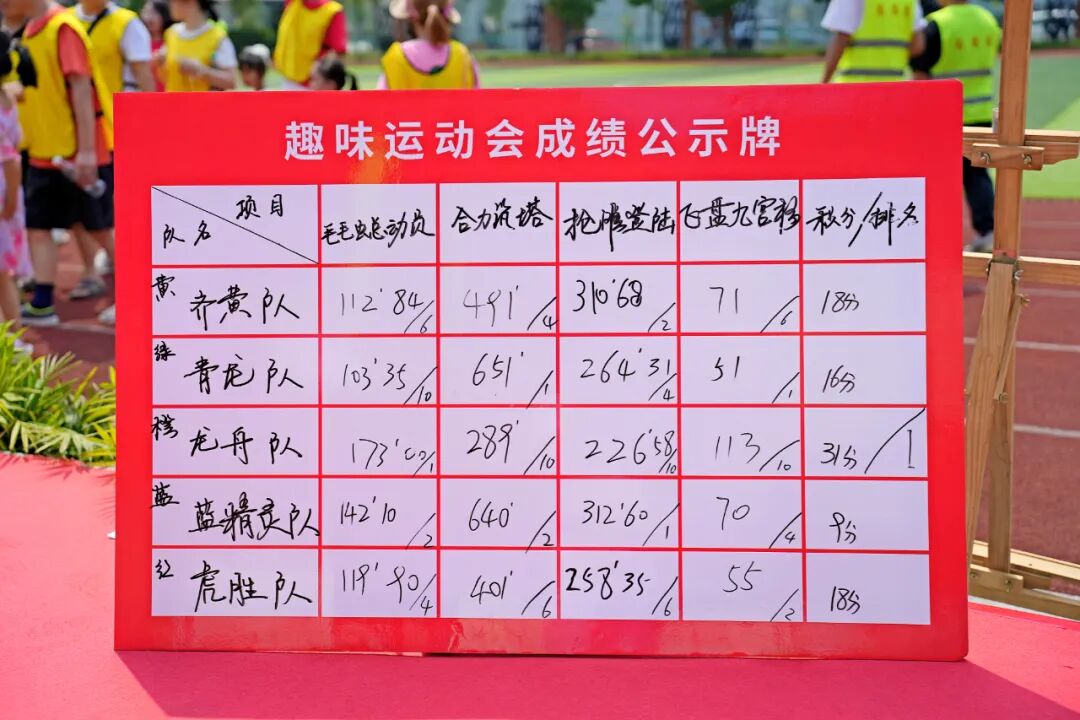 趣味运动会成绩公示牌
项目
队名
毛毛虫总动员 合力筑塔 抢滩登陆 飞盘九宫格 积分/排名
黄 齐黄队 112'84/6 491'/4 310'68/2 71/6 18分
绿 青龙队 103'35/10 651'/1 264'31/4 51/1 16分
橙 龙舟队 173'00/1 289'/10 226'58/10 113/10 31分/1
蓝 蓝精灵队 142'10/2 640'/2 312'60/1 70/4 9分
红 虎胜队 119'90/4 401'/6 258'35/6 55/2 18分